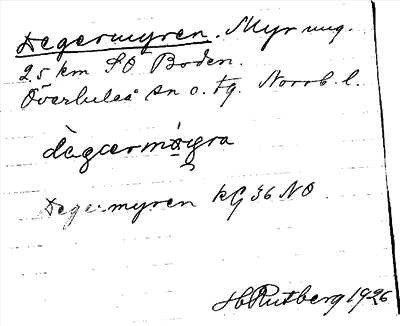 Degermyren. Myr ung.
2.5 km SO Boden.
Överluleå sn o. tg. Norrb. l.
dägærmøyra
Degermyren kG 36 NO.
H Rutberg 1926